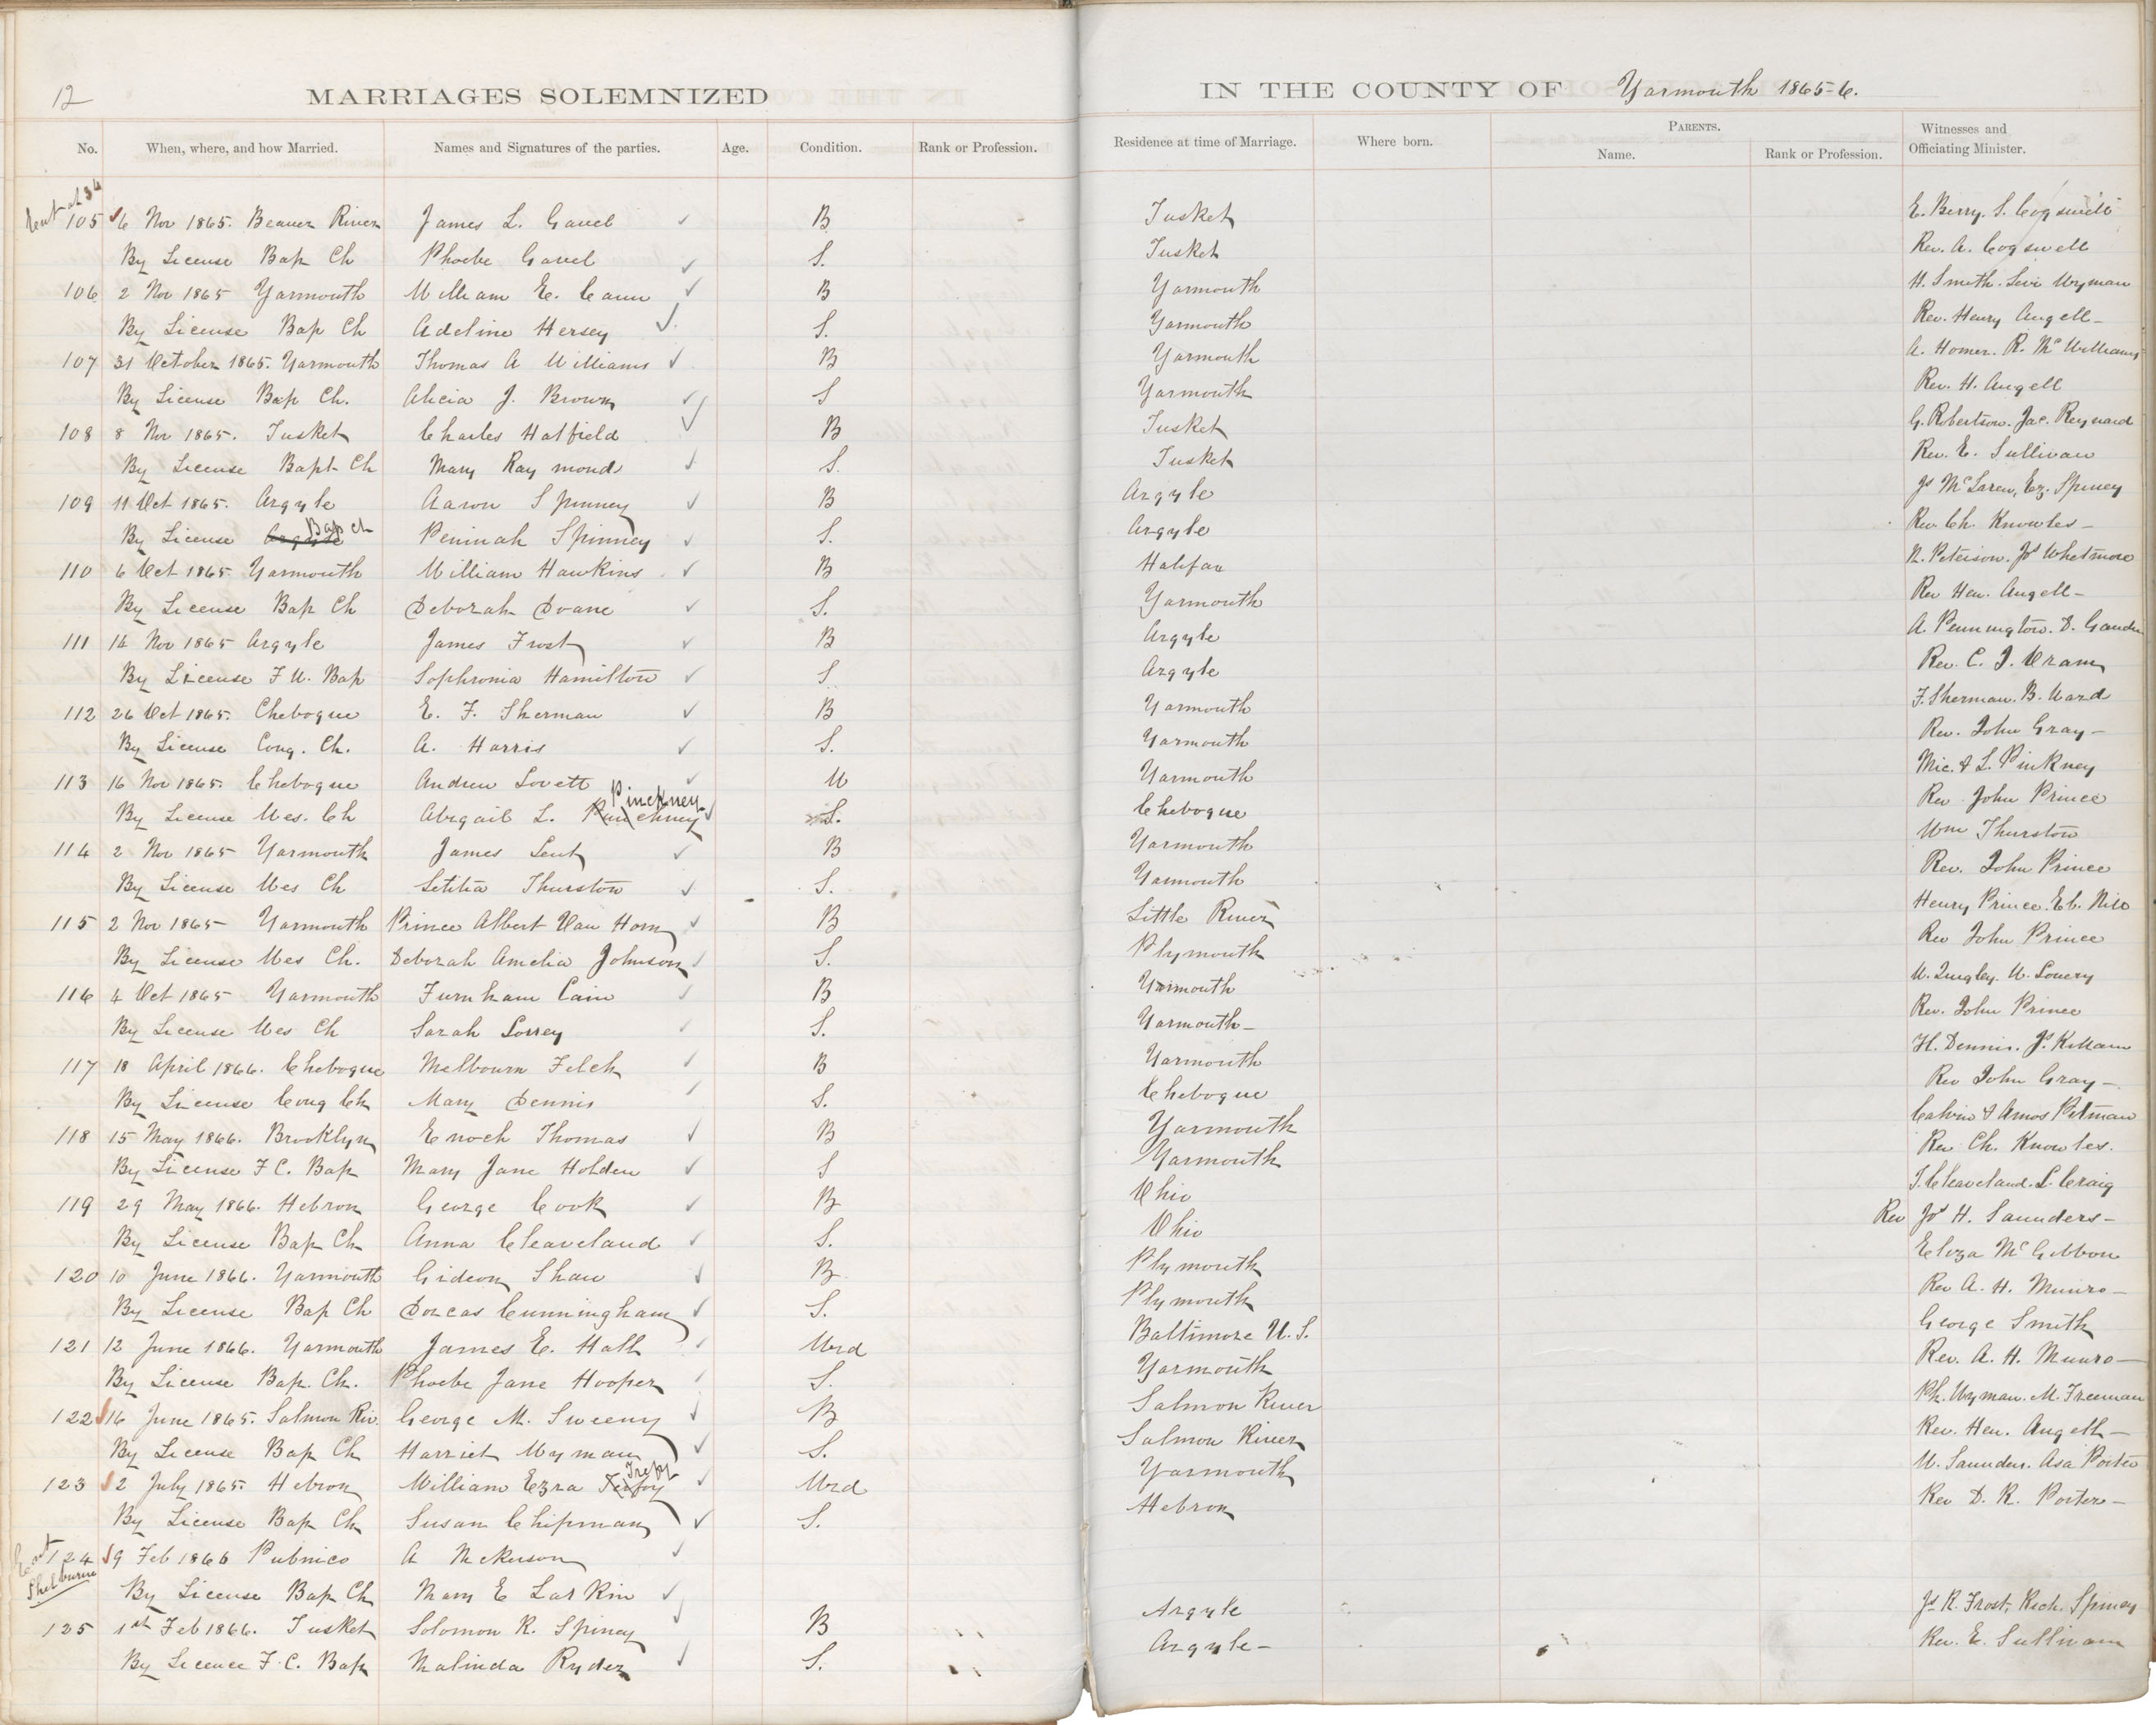 12
MARRIAGES SOLEMNIZED IN THE COUNTY OF Yarmouth 1865-6.
No. When, where, and how Married. Names and Signatures of the parties. Age. Condition. Rank or Profession. Residence at time of Marriage. Where born. PARENTS. Name. Rank or Profession. Witnesses and Officiating Minister.
105 6 Nov 1865. Beaver River James L. Gavel B Tusket E. Berry. S. Cogswell
By License Bap Ch Phoebe Gavel S. Tusket Rev. A. Cogswell
106 2 Nov 1865 Yarmouth William E. Cann B Yarmouth H. Smith. Levi Wyman
By License Bap Ch Adeline Hersey S. Yarmouth Rev. Henry Angell
107 31 October 1865. Yarmouth Thomas A Williams B Yarmouth A. Homer. R. McWilliams
By License Bap Ch. Alicia J. Brown S Yarmouth Rev. H. Angell
108 8 Nov 1865. Tusket Charles Hatfield B Tusket G. Robertson. Jac. Reynard
By License Bapt Ch Mary Raymond S. Tusket Rev. E. Sullivan
109 11 Oct 1865. Argyle Aaron Spinney B Argyle Js McLaren, Ez. Spiney
By License Bap Ch Peninah Spinney S. Argyle Rev Ch. Knowles
110 6 Oct 1865. Yarmouth William Hawkins B Halifax N. Peterson. Js Whetmore
By License Bap Ch Deborah Doane S. Yarmouth Rev Hen. Angell
111 14 Nov 1865 Argyle James Frost B Argyle A. Pennington. D.
By License F. W. Bap Sophronia Hamilton S Argyle Rev. C. J. Oram
112 26 Oct 1865. Chebogue E. F. Sherman B Yarmouth F. Sherman. B. Ward
By License Cong. Ch. A. Harris S. Yarmouth Rev. John Gray
113 16 Nov 1865. Chebogue Andrew Lovett W Yarmouth Mic. & L. Pinkney
By License Wes. Ch Abigail L. Pinckney S. Chebogue Rev John Prince
114 2 Nov 1865 Yarmouth James Lent B Yarmouth Wm Thurston
By License Wes Ch Letitia Thurston S. Yarmouth Rev. John Prince
115 2 Nov 1865 Yarmouth Prince Albert Van Horn B Little River Henry Prince. Eb.
By License Wes Ch. Deborah Amelia Johnson S. Plymouth Rev John Prince
116 4 Oct 1865 Yarmouth Furnham Cain B Yarmouth W. Quigley. W. Lovery
By License Wes Ch Sarah Lorrey S. Yarmouth Rev. John Prince
117 18 April 1866. Chebogue Melbourn Felch B Yarmouth H. Dennis. Js Killam
By License Cong Ch Mary Dennis S. Chebogue Rev John Gray
118 15 May 1866. Brooklyn Enoch Thomas B Yarmouth Calvin & Amos Pitman
By License F C. Bap Mary Jane Holden S Yarmouth Rev Ch. Knowles.
119 29 May 1866. Hebron George Cook B Ohio J. Cleaveland. L. Craig
By License Bap Ch Anna Cleaveland S. Ohio Rev Js H. Saunders
120 10 June 1866. Yarmouth Gideon Shaw B Plymouth Eliza McGibbon
By License Bap Ch Dorcas Cunningham S. Plymouth Rev A. H. Munro
121 12 June 1866. Yarmouth James E. Hall Wrd Baltimore U. S. George Smith
By License Bap. Ch. Phoebe Jane Hooper S. Yarmouth Rev. A. H. Munro
122 16 June 1865. Salmon Riv. George M. Sweeny B Salmon River Ph. Wyman. M. Freeman
By License Bap Ch Harriet Wyman S. Salmon River Rev. Hen. Angell
123 2 July 1865. Hebron William Ezra Trefry Wrd Yarmouth W. Saunders. Asa Porter
By License Bap Ch Susan Chipman S. Hebron Rev D. R. Porter
124 9 Feb 1866 Pubnico A
Shelburne By License Bap Ch Mary E Larkin
125 1st Feb 1866. Tusket Solomon R. Spiney B Argyle Js R. Frost, Rich. Spiney
By Licence F. C. Bap Malinda Ryder S. Argyle Rev. E. Sullivan